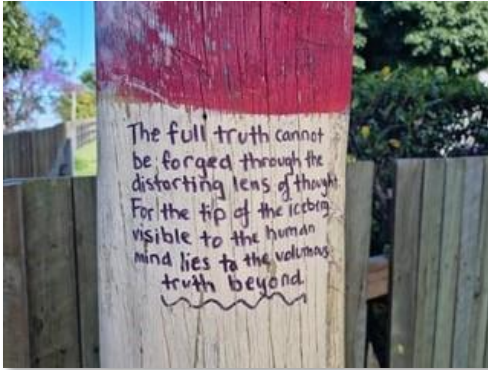 The full truth cannot
be forged through the
distorting lens of thought.
For the tip of the iceberg
visible to the human
mind lies to the volumous
truth beyond.